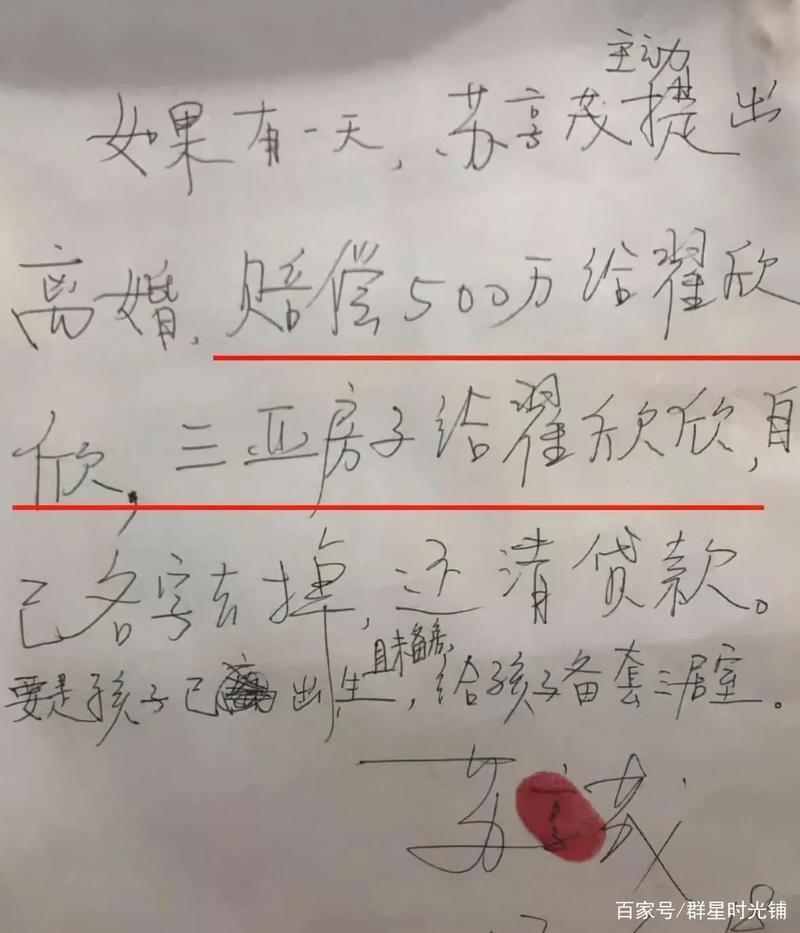 主动
如果有一天,苏享茂提出
离婚,赔偿500万给翟欣
欣,三亚房子给翟欣欣,自
己名字去掉,还清贷款。
且未备房,
要是孩子已出生,给孩子备套三居室。
苏享茂
百家号/群星时光铺